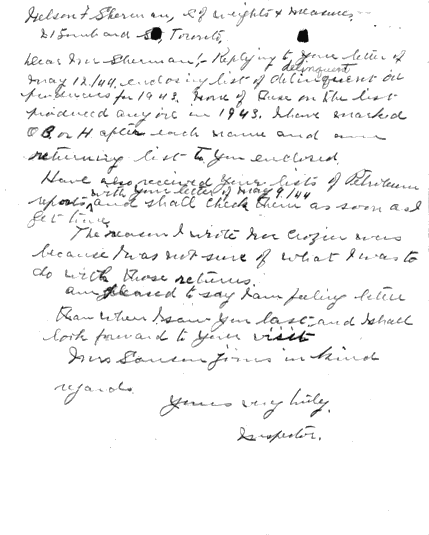 Nelson F Sherman, of Weights & Measure,
21 Lombard St, Toronto,
Dear Mr Sherman:- Replying to your letter of
delinquent
May 12/44, enclosing list of delinquent oil
producers for 1943. None of those on the list
produced any oil in 1943. I have marked
O B or H after each name and am
returning list to you enclosed.
Have also received your lists of Petroleum
with your letter of May 9/44
reports, and shall check them as soon as I
get time.
The reason I wrote Mr Crozier was
because I was not sure of what I was to
do with those returns.
am pleased to say I am feeling better
than when I saw you last, and I shall
look forward to your visit
Mrs Sanson joins in kind
regards.
Yours very truly,
Inspector.